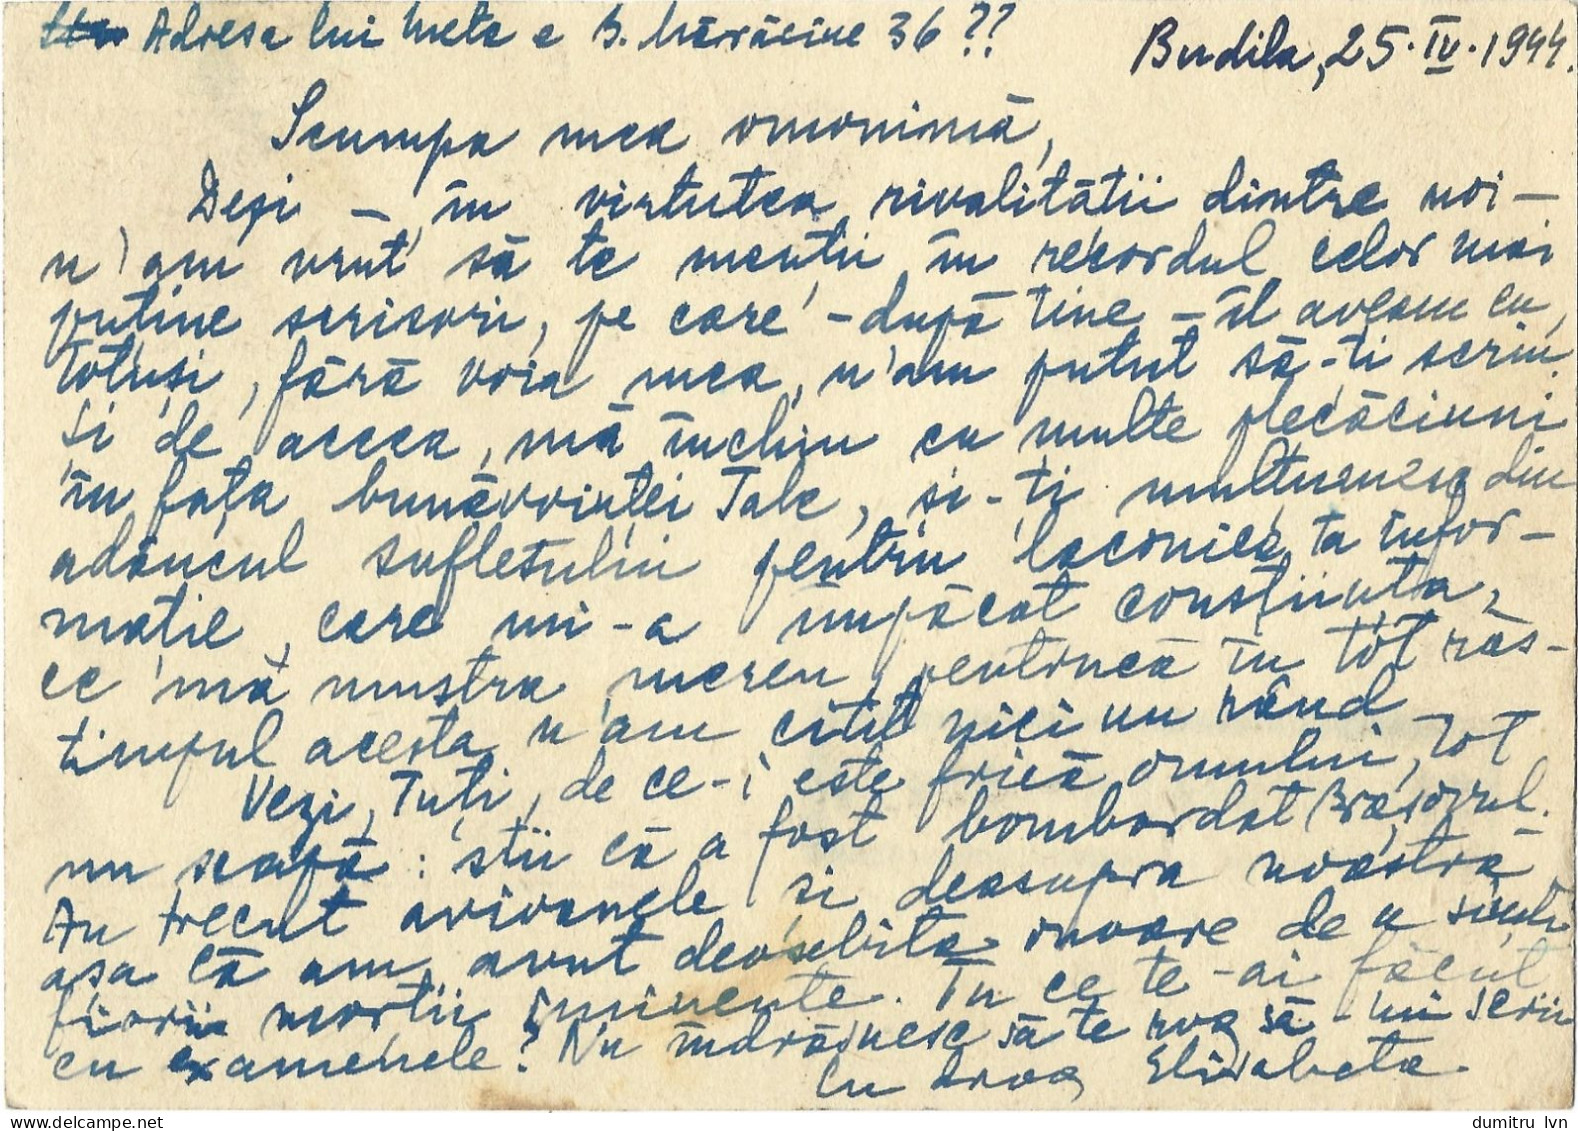 Adresa lui Meta e B. Mărăcine 36??
Budila, 25.IV.1944.
Scumpa mea omonimă,
Deși – în virtutea rivalității dintre noi –
n'am vrut să te mențiu în recordul celor mai
puține scrisori, pe care – după tine – îl aveam eu,
totuși, fără voia mea, n'am putut să-ți scriu.
Și de aceea, mă închin cu multe plecăciuni
în fața bunăvoinței Tale, și-ți mulțumesc din
adâncul sufletului pentru laconica ta infor-
mație, care mi-a împăcat conștiința,
ce mă mustra mereu, pentrucă în tot răs-
timpul acesta n'am citit nici un rând.
Vezi, Tuți, de ce-i este frică omului, tot
nu scapă: știi că a fost bombardat Brașovul.
Au trecut avioanele și deasupra noastră
așa că am avut deosebita onoare de a simți
fiorii morții iminente. Tu ce te-ai făcut
cu examenele? Nu îndrăsnesc să te rog să-mi scrii
Cu drag Elisabeta.
dumitru lvn